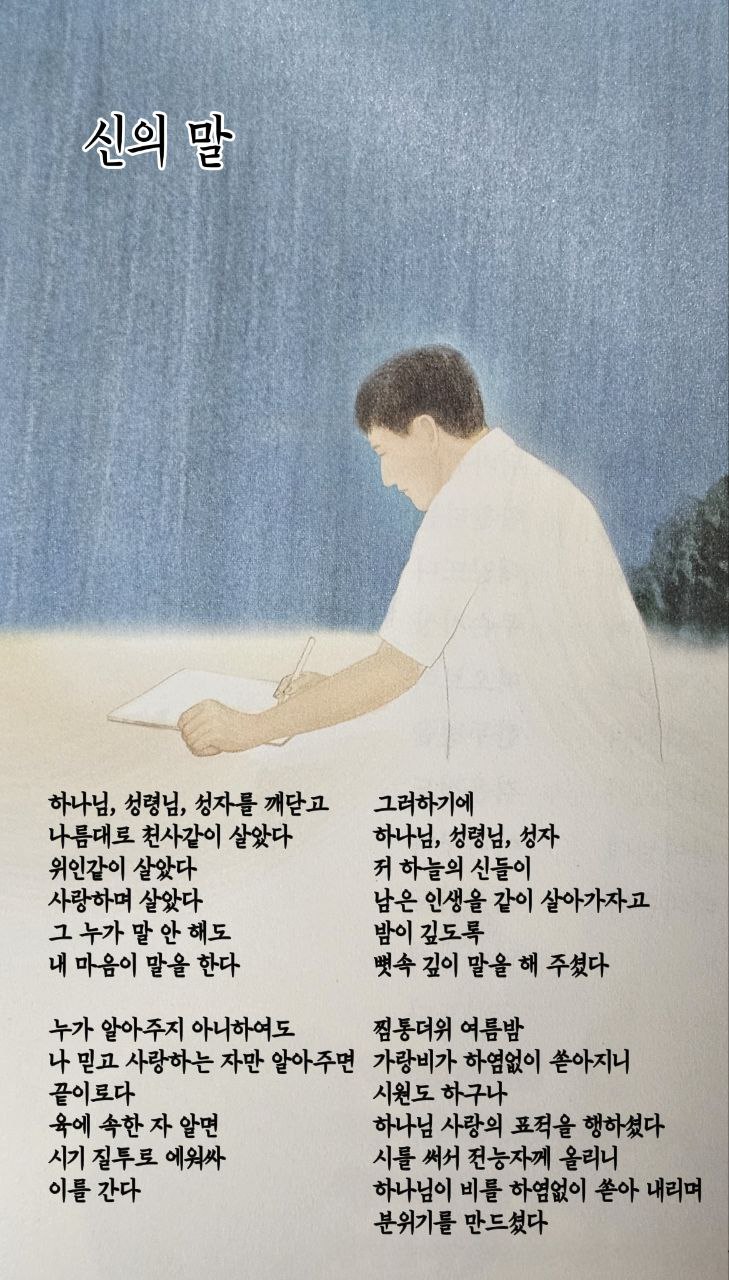 신의 말
하나님, 성령님, 성자를 깨닫고
나름대로 천사같이 살았다
위인같이 살았다
사랑하며 살았다
그 누가 말 안 해도
내 마음이 말을 한다
누가 알아주지 아니하여도
나 믿고 사랑하는 자만 알아주면
끝이로다
육에 속한 자 알면
시기 질투로 에워싸
이를 간다
그러하기에
하나님, 성령님, 성자
저 하늘의 신들이
남은 인생을 같이 살아가자고
밤이 깊도록
뼛속 깊이 말을 해 주셨다
찜통더위 여름밤
가랑비가 하염없이 쏟아지니
시원도 하구나
하나님 사랑의 표적을 행하셨다
시를 써서 전능자께 올리니
하나님이 비를 하염없이 쏟아 내리며
분위기를 만드셨다